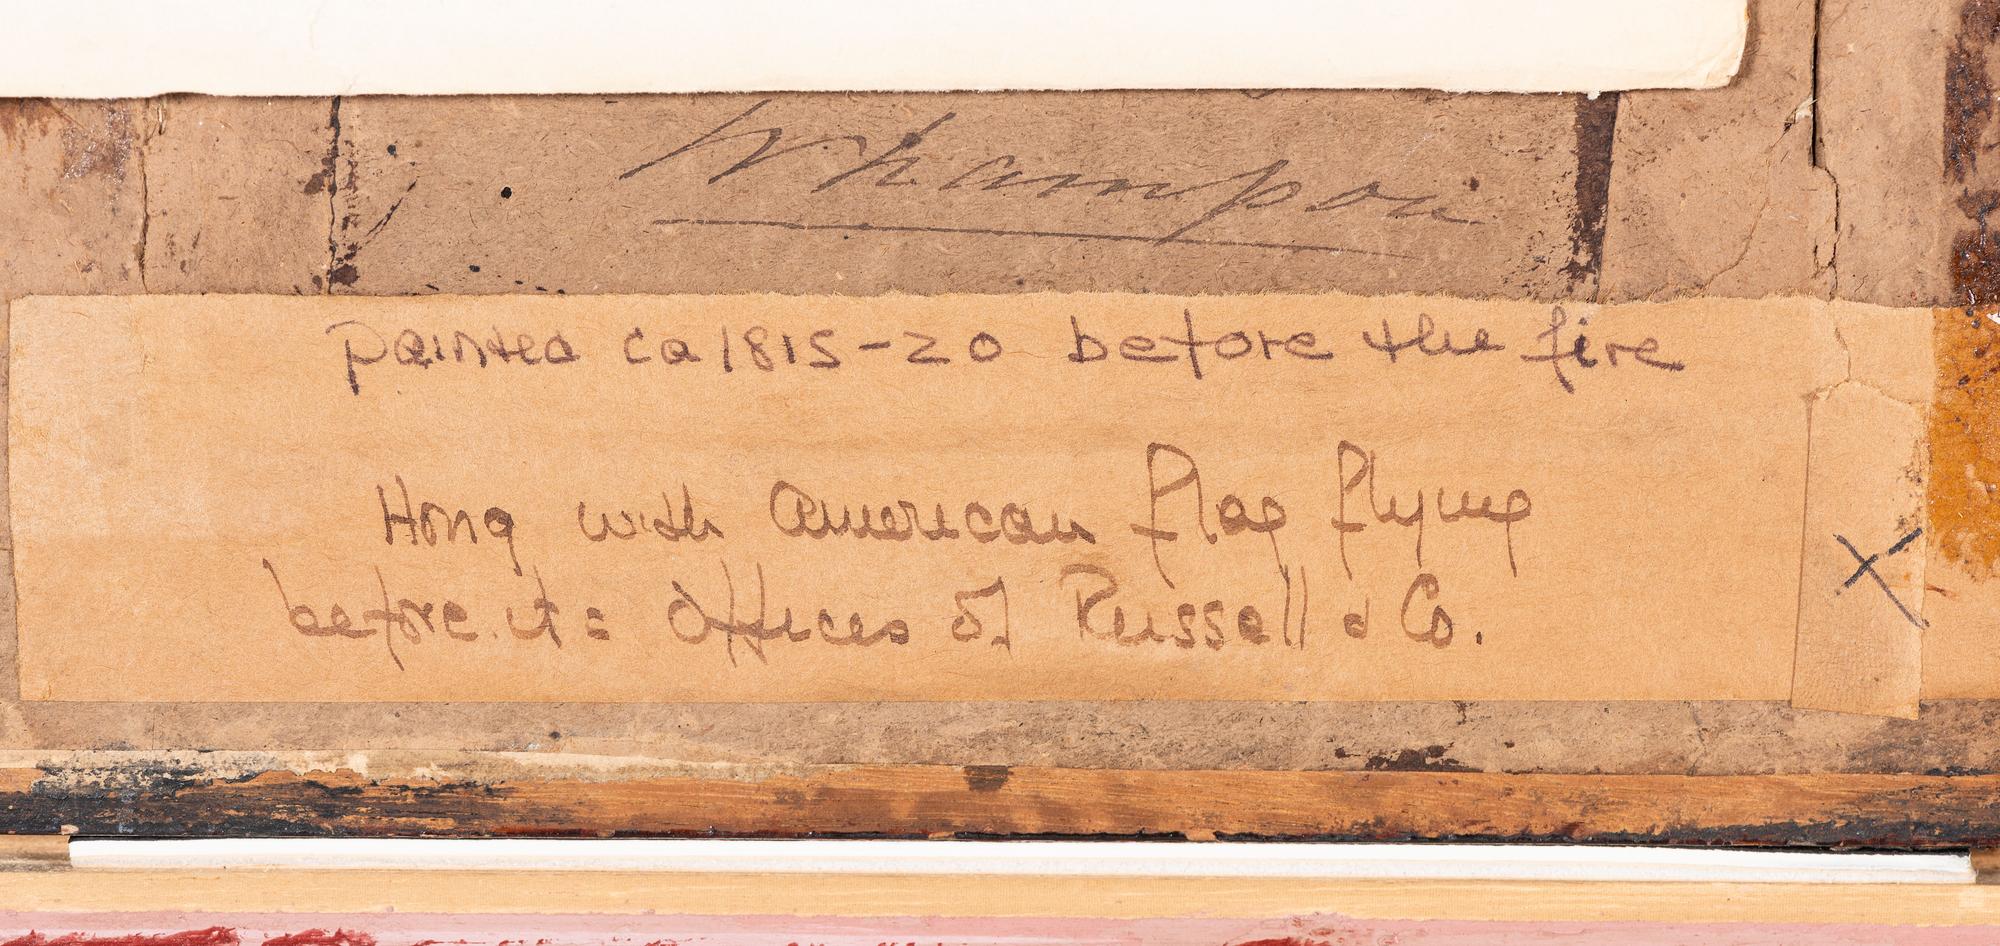 Whampoa
painted ca 1815-20 before the fire
Hong with American flag flying
before its offices of Russell & Co.
X